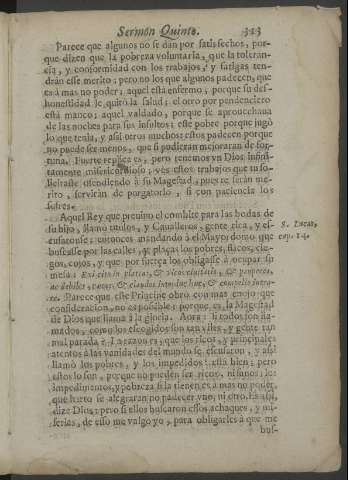 Sermon Quinto. 323
Parece que algunos no se dan por satisfechos, por-
que dizen que la pobreza voluntaria, que la toleran-
cia, y conformidad con los trabajos, y fatigas ten-
dràn esse merito; pero no los que algunos padecen, que
es à mas no poder; aquel está enfermo, porque su des-
honestidad le quitó la salud; el otro por pendenciero
està manco; aquel valdado, porque se aprouechaua
de las noches para sus insultos; este pobre porque jugò
lo que tenia, y assi otros muchos; estos padecen porque
no puede ser menos, que si pudieran mejoraran de for-
tuna. Fuerte replica es, pero tenemos vn Dios infini-
tamente misericordioso; y es estos trabajos que tu so-
licitaste ofendiendo à su Magestad, pues te seràn me-
rito, serviràn de purgatorio, si con paciencia los
sufres.
Aquel Rey que preuino el combite para las bodas de
su hijo, llamò titulos, y Caualleros, gente rica, y es-
cusaronse; entonces mandando à el Mayordomo que
buscasse por las calles, y plaças los pobres, flacos, cie-
gos, cojos, y que por fuerça los obligasse à ocupar su
mesa: Exi citò in plateas, & vicos civitatis, & pauperes,
ac debiles, cæcos, & claudos introduc huc, & compelle intra-
re. Parece que este Principe obrò con mas enojo que
consideracion, no es possible; porque es la Magestad
de Dios que llama à la gloria. Aora: si todos son lla-
mados, como los escogidos son tan viles, y gente tan
mal parada? La razon es; que los ricos, y principales
atentos à las vanidades del mundo se escusaron, y assi
llamò los pobres, y los impedidos: està bien; pero
estos lo son, porque no pueden ser ricos, ni sanos; los
impedimentos, y pobreza si la tienen es à mas no poder,
que harto se alegraran no padecer vno, ni otro. Ea assi,
dize Dios; pero si ellos buscaron essos achaques, y mi-
serias, de esso me valgo yo, para obligarles à que me
bus-
S. Lucas,
cap. 14.